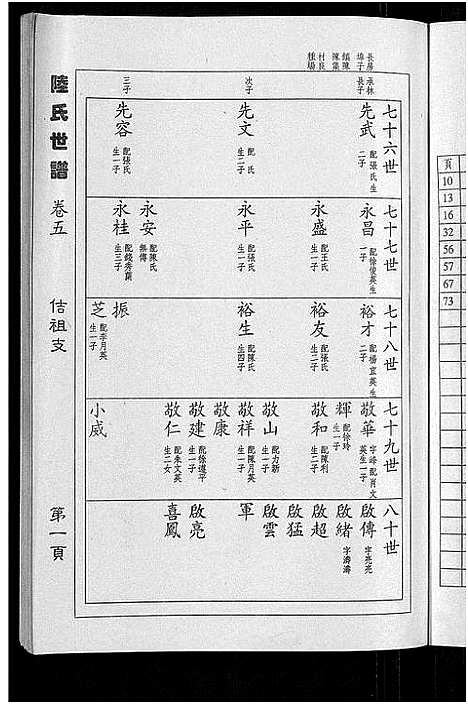 陸氏世譜
卷五
佶祖支
第一頁
長房
埠子
鎮陳
陳集
村良
種場
承林
長子
次子
三子
七十六世
先武
配張氏生
二子
先文
配 氏
生二子
先容
配張氏
生一子
七十七世
永昌
配徐俊英生
一子
永盛
配王氏
生一子
永平
配張氏
生一子
永安
配陳氏
無傳
永桂
配錢秀蘭
生三子
七十八世
裕才
配楊宜英生
二子
裕友
配張氏
生二子
裕生
配陳氏
生四子
振
芝
配李月英
生一子
七十九世
敬華
字峰 配肖文
英生二子
輝
配徐玲
生一子
敬和
配陳利
生二子
敬山
配力新
生一子
敬祥
配陳月英
生一子
敬康
敬建
配徐遵平
生一子
敬仁
配朱文英
生二女
小威
八十世
啟傳
字亮亮
啟緒
字濤濤
啟超
啟猛
啟雲
軍
啟亮
喜鳳
頁
10
13
16
32
56
57
67
73